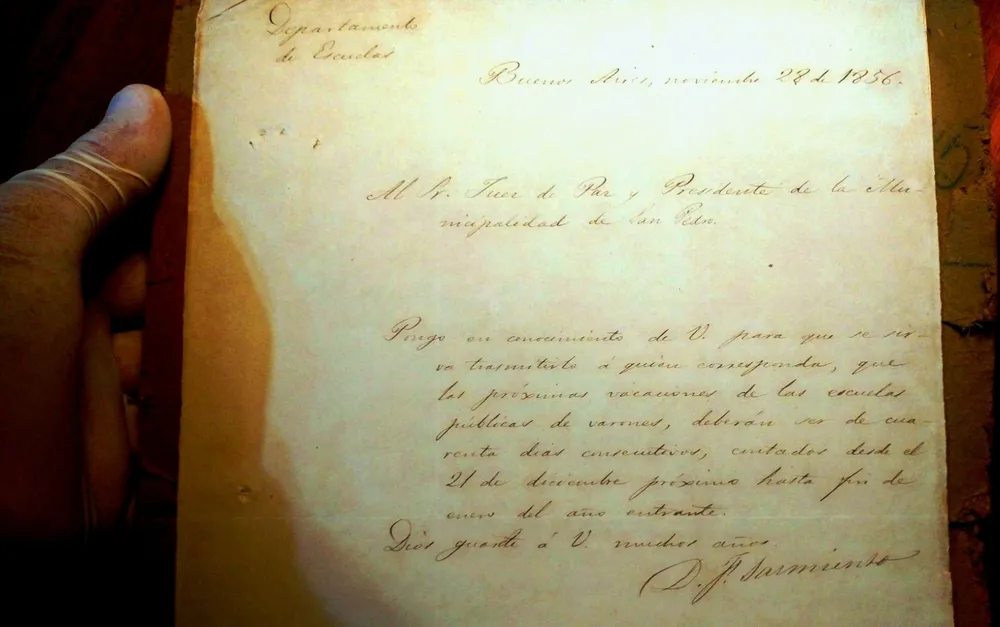 Departamento
de Escuelas
Buenos Aires, noviembre 28 de 1856.
Al Sr. Juez de Paz y Presidente de la Mu-
nicipalidad de San Pedro.
Pongo en conocimiento de V. para que se sir-
va trasmitirlo á quien corresponda, que
las próximas vacaciones de las escuelas
públicas de varones, deberán ser de cua-
renta dias consecutivos, contados desde el
21 de diciembre próximo hasta fin de
enero del año entrante.
Dios guarde á V. muchos años.
D. F. Sarmiento